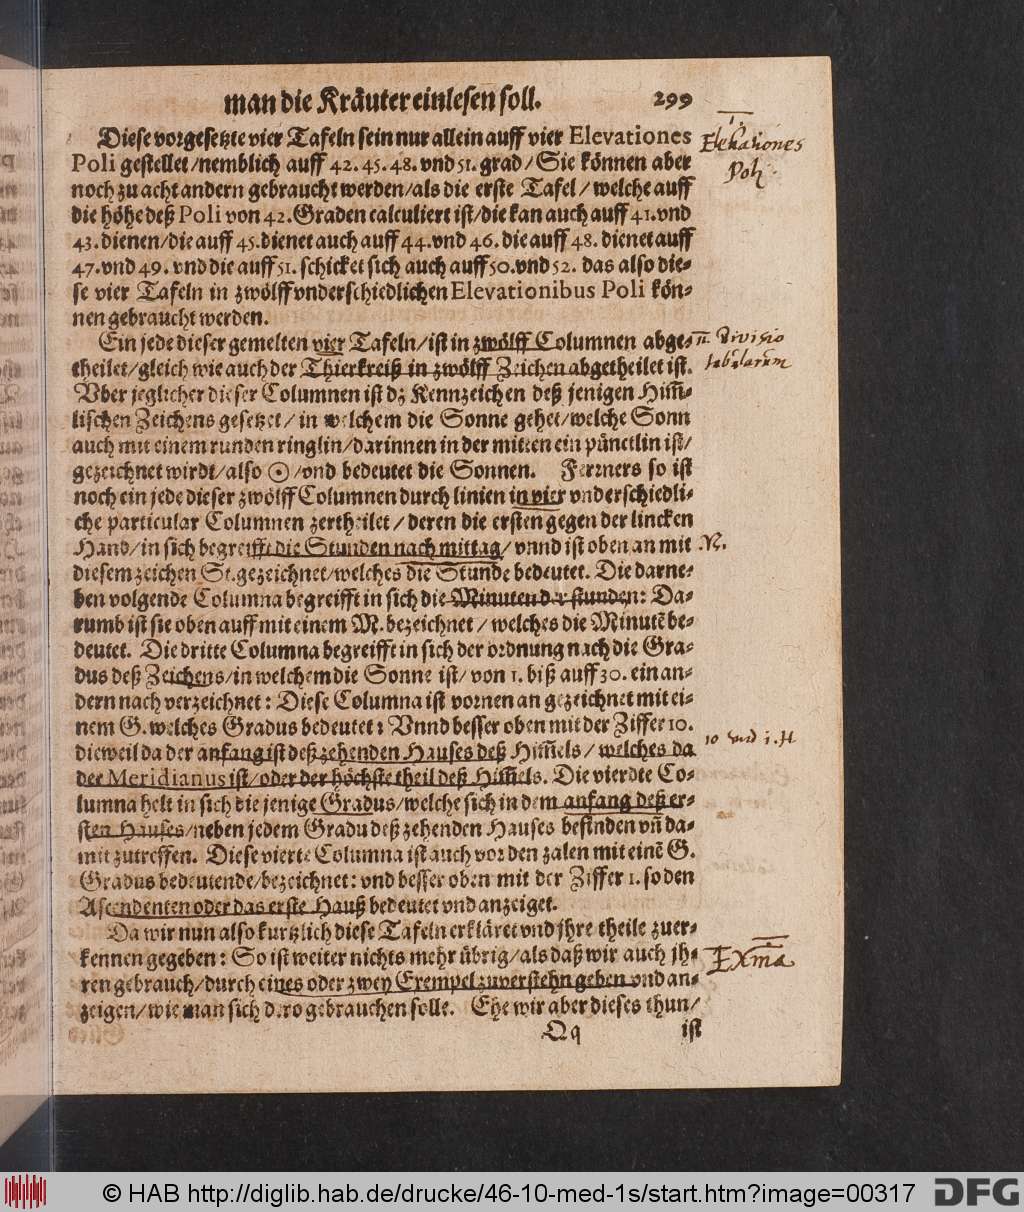 man die Kräuter einlesen soll. 299
Diese vorgesetzte vier Tafeln sein nur allein auff vier Elevationes
Poli gestellet/nemblich auff 42. 45. 48. vnd 51. grad/Sie können aber
noch zu acht andern gebraucht werden/als die erste Tafel/welche auff
die höhe deß Poli von 42. Graden calculiert ist/die kan auch auff 41. vnd
43. dienen/die auff 45. dienet auch auff 44. vnd 46. die auff 48. dienet auff
47. vnd 49. vnd die auff 51. schicket sich auch auff 50. vnd 52. das also die-
se vier Tafeln in zwölff vnderschiedlichen Elevationibus Poli kön-
nen gebraucht werden.
Ein jede dieser gemelten vier Tafeln/ist in zwölff Columnen abge-
theilet/gleich wie auch der Thierkreiß in zwölff Zeichen abgetheilet ist.
Vber jeglicher dieser Columnen ist dz Kennzeichen deß jenigen Him̄-
lischen Zeichens gesetzet/in welchem die Sonne gehet/welche Sonn
auch mit einem runden ringlin/darinnen in der mitten ein pünctlin ist/
gezeichnet wirdt/also ☉/vnd bedeutet die Sonnen. Ferrners so ist
noch ein jede dieser zwölff Columnen durch linien in vier vnderschiedli-
che particular Columnen zertheilet/deren die ersten gegen der lincken
Hand/in sich begreifft die Stunden nach mittag/vnnd ist oben an mit
diesem zeichen St. gezeichnet/welches die Stunde bedeutet. Die darne-
ben volgende Columna begreifft in sich die Minuten der stunden: Da-
rumb ist sie oben auff mit einem M. bezeichnet/welches die Minutē be-
deutet. Die dritte Columna begreifft in sich der ordnung nach die Gra-
dus deß Zeichens/in welchem die Sonne ist/von 1. biß auff 30. ein an-
dern nach verzeichnet: Diese Columna ist vornen an gezeichnet mit ei-
nem G. welches Gradus bedeutet: Vnnd besser oben mit der Ziffer 10.
dieweil da der anfang ist deß zehenden Hauses deß Him̄els/welches da
der Meridianus ist/oder der höchste theil deß Him̄els. Die vierdte Co-
lumna helt in sich die jenige Gradus/welche sich in dem anfang deß er-
sten Hauses/neben jedem Gradu deß zehenden Hauses befinden vn̄ da-
mit zutreffen. Diese vierte Columna ist auch vor den zalen mit einē G.
Gradus bedeutende/bezeichnet: vnd besser oben mit der Ziffer 1. so den
Ascendenten oder das erste Hauß bedeutet vnd anzeiget.
Da wir nun also kurtzlich diese Tafeln erkläret vnd jhre theile zuer-
kennen gegeben: So ist weiter nichts mehr übrig/als daß wir auch jh-
ren gebrauch/durch eines oder zwey Exempel zuverstehn geben vnd an-
zeigen/wie man sich dero gebrauchen solle. Ehe wir aber dieses thun/
Qq ist
I.
Elevationes
Poli.
II. Divisio
tabularum
M.
10 und 1. H
Exma
© HAB http://diglib.hab.de/drucke/46-10-med-1s/start.htm?image=00317 DFG